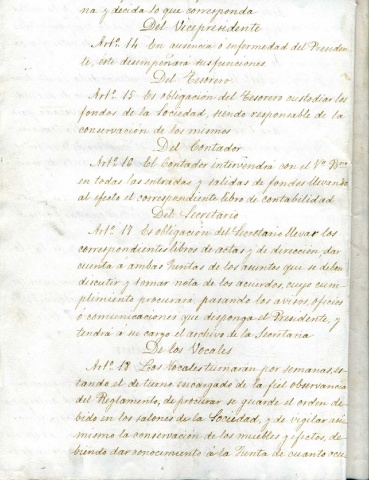 na y decida lo que corresponda
Del Vicepresidente
Artº. 14 En ausencia o enfermedad del Presiden-
te, este desempeñará sus funciones
Del Tesorero
Artº. 15 Es obligación del Tesorero custodiar los
fondos de la Sociedad, siendo responsable de la
conservación de los mismos
Del Contador
Artº. 16 El Contador intervendra con el Vº. Bno
en todas las entradas y salidas de fondos llevando
al efecto el correspondiente libro de contabilidad
Del Secretario
Artº. 17 Es obligación del Secretario llevar los
correspondientes libros de actas y de dirección, dar
cuenta a ambas Juntas de los asuntos que se deben
discutir y tomar nota de los acuerdos, cuyo cum-
plimiento procurará, pasando los avisos oficios
o comunicaciones que disponga el Presidente, y
tendrá a su cargo el archivo de la Secretaria
De los Vocales
Artº. 18 Los Vocales turnarán por semanas, es-
tando el de turno encargado de la fiel observancia
del Reglamento, de procurar se guarde el orden de-
bido en los salones de la Sociedad, y de vigilar asi
mismo la conservación de los muebles y efectos, de-
biendo dar conocimiento á la Junta de cuanto ocu